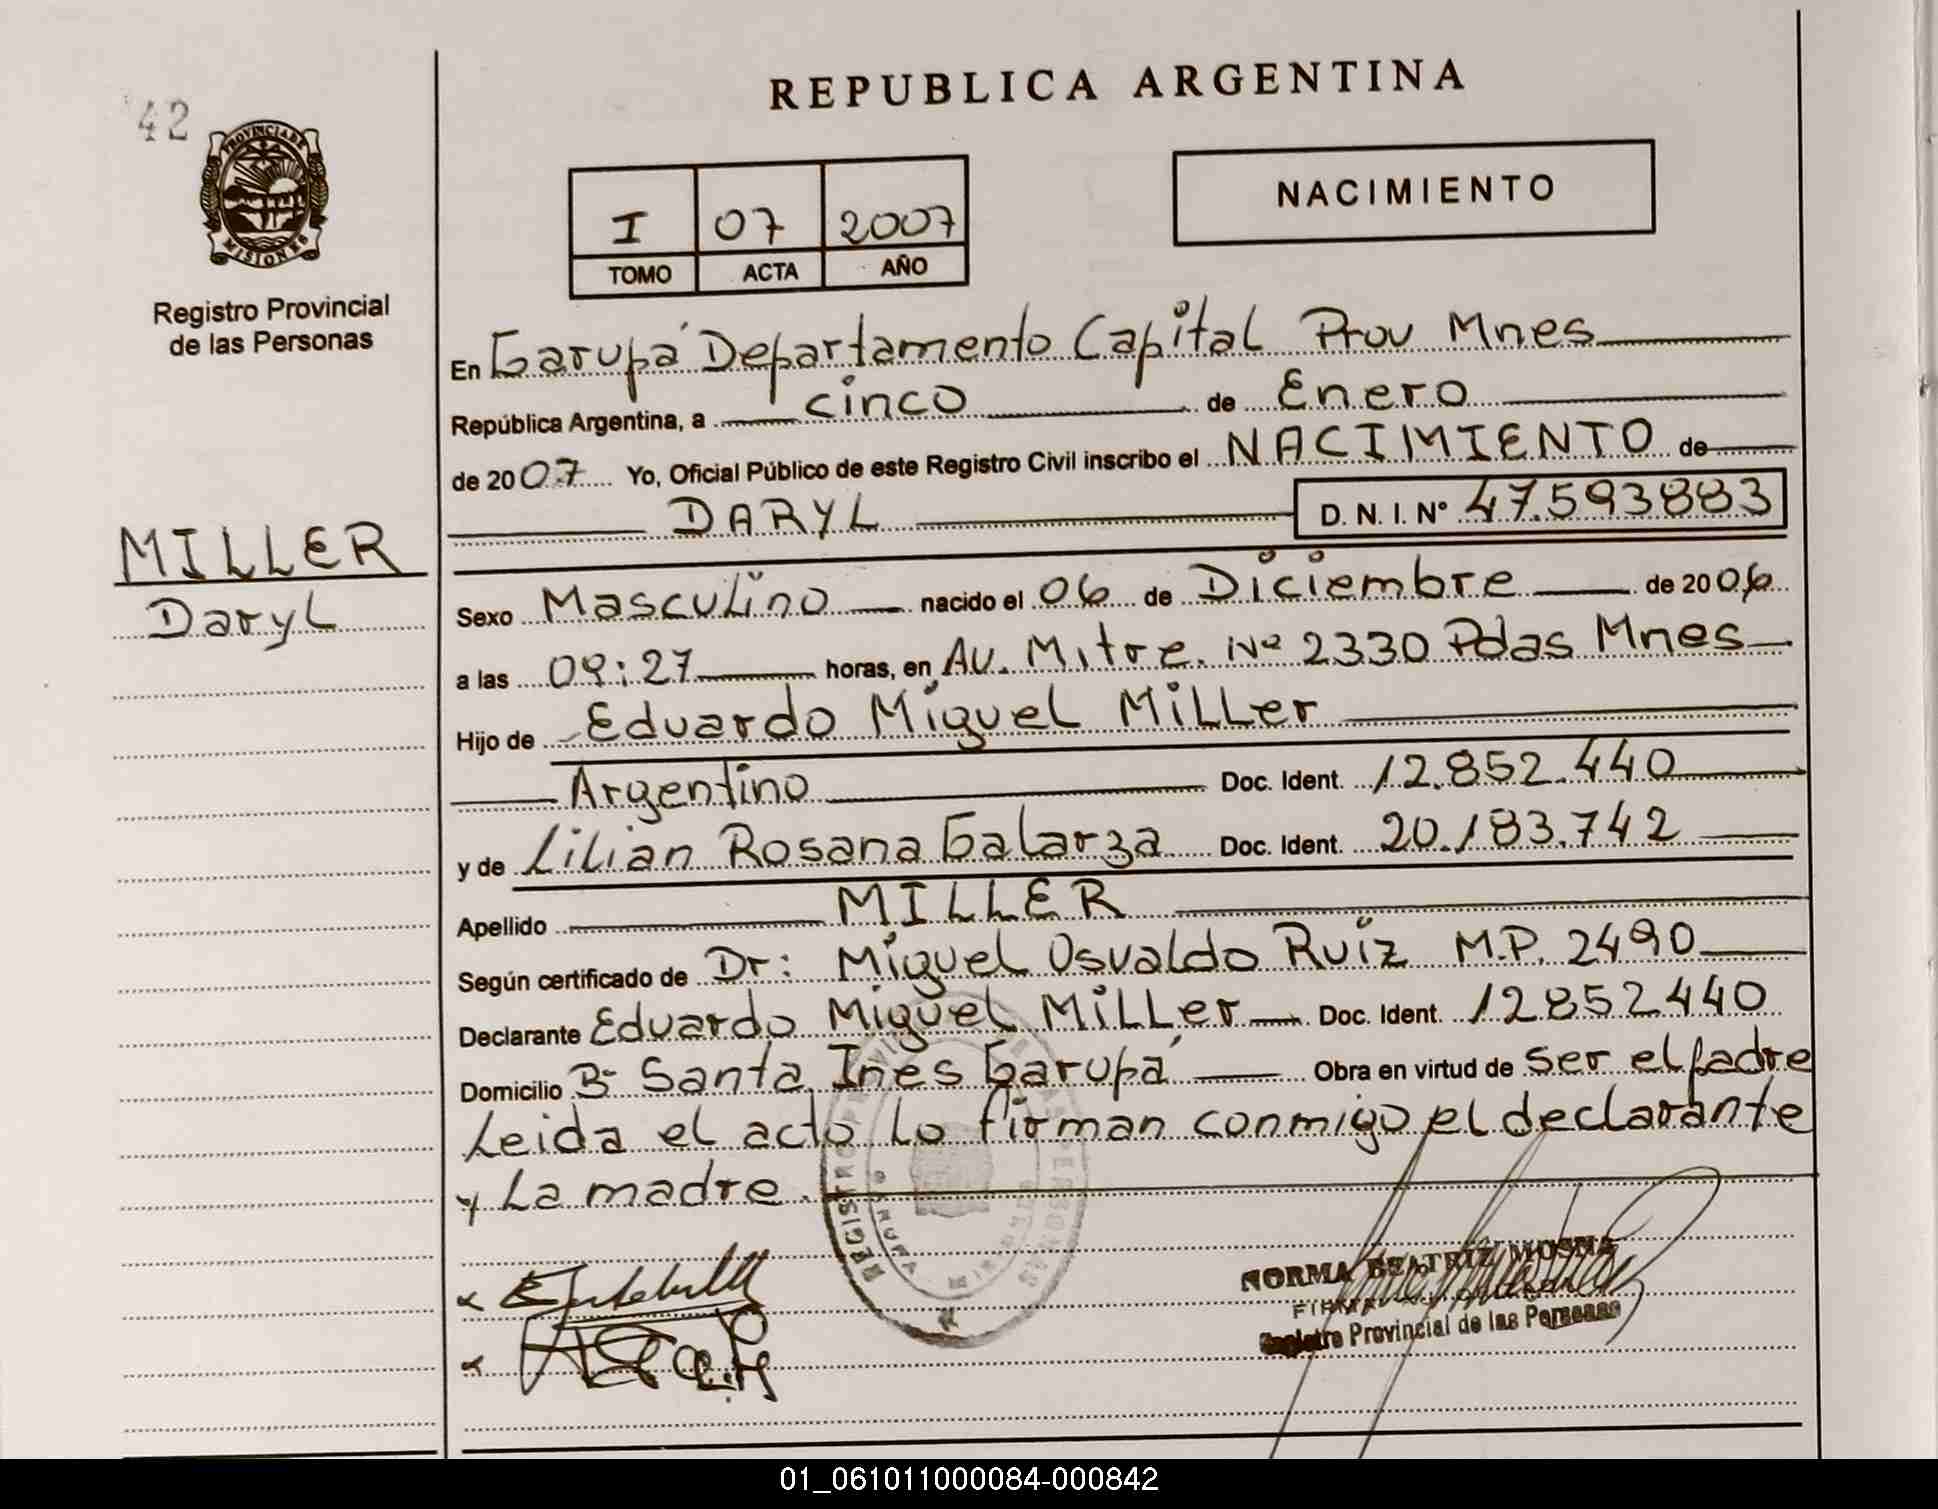 42
REPUBLICA ARGENTINA
PROVINCIA DE
MISIONES
Registro Provincial
de las Personas
I 07 2007
TOMO ACTA AÑO
NACIMIENTO
En Garupá Departamento Capital Prov Mnes
República Argentina, a cinco de Enero
de 2007 Yo, Oficial Público de este Registro Civil inscribo el NACIMIENTO de
DARYL D. N. I. Nº 47.593883
MILLER
Daryl
Sexo Masculino nacido el 06 de Diciembre de 2006
a las 09:27 horas, en Av. Mitre. Nº 2330 Pdas Mnes
Hijo de Eduardo Miguel Miller
Argentino Doc. Ident. 12.852.440
y de Lilian Rosana Galarza Doc. Ident. 20.183.742
Apellido MILLER
Según certificado de Dr: Miguel Osvaldo Ruiz M.P. 2490
Declarante Eduardo Miguel Miller Doc. Ident. 12852440
Domicilio Bº Santa Ines Garupá Obra en virtud de ser el padre
Leida el acto lo firman conmigo el declarante
y La madre.
NORMA BEATRIZ
Registro Provincial de las Personas
01_061011000084-000842